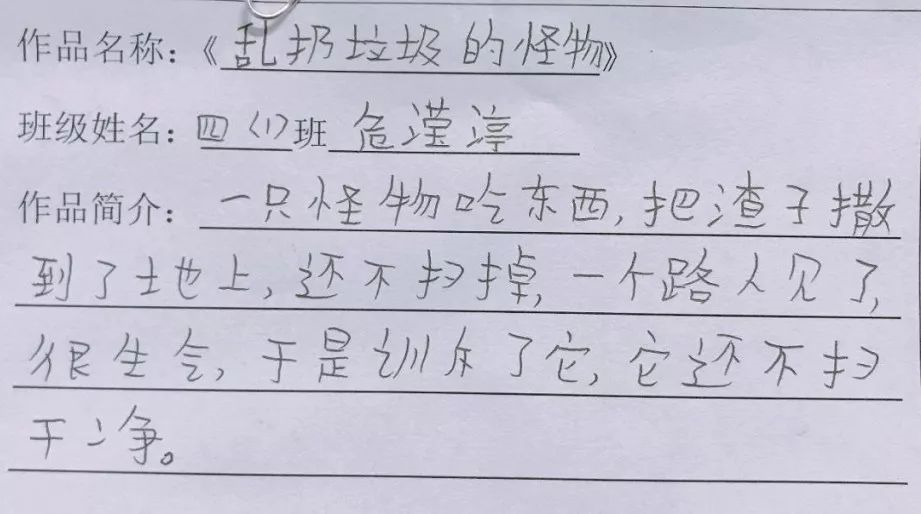 作品名称：《乱扔垃圾的怪物》
班级姓名：四（1）班 危滢渟
作品简介：一只怪物吃东西，把渣子撒
到了土地上，还不扫掉，一个路人见了，
很生气，于是训斥了它，它还不扫
干净。